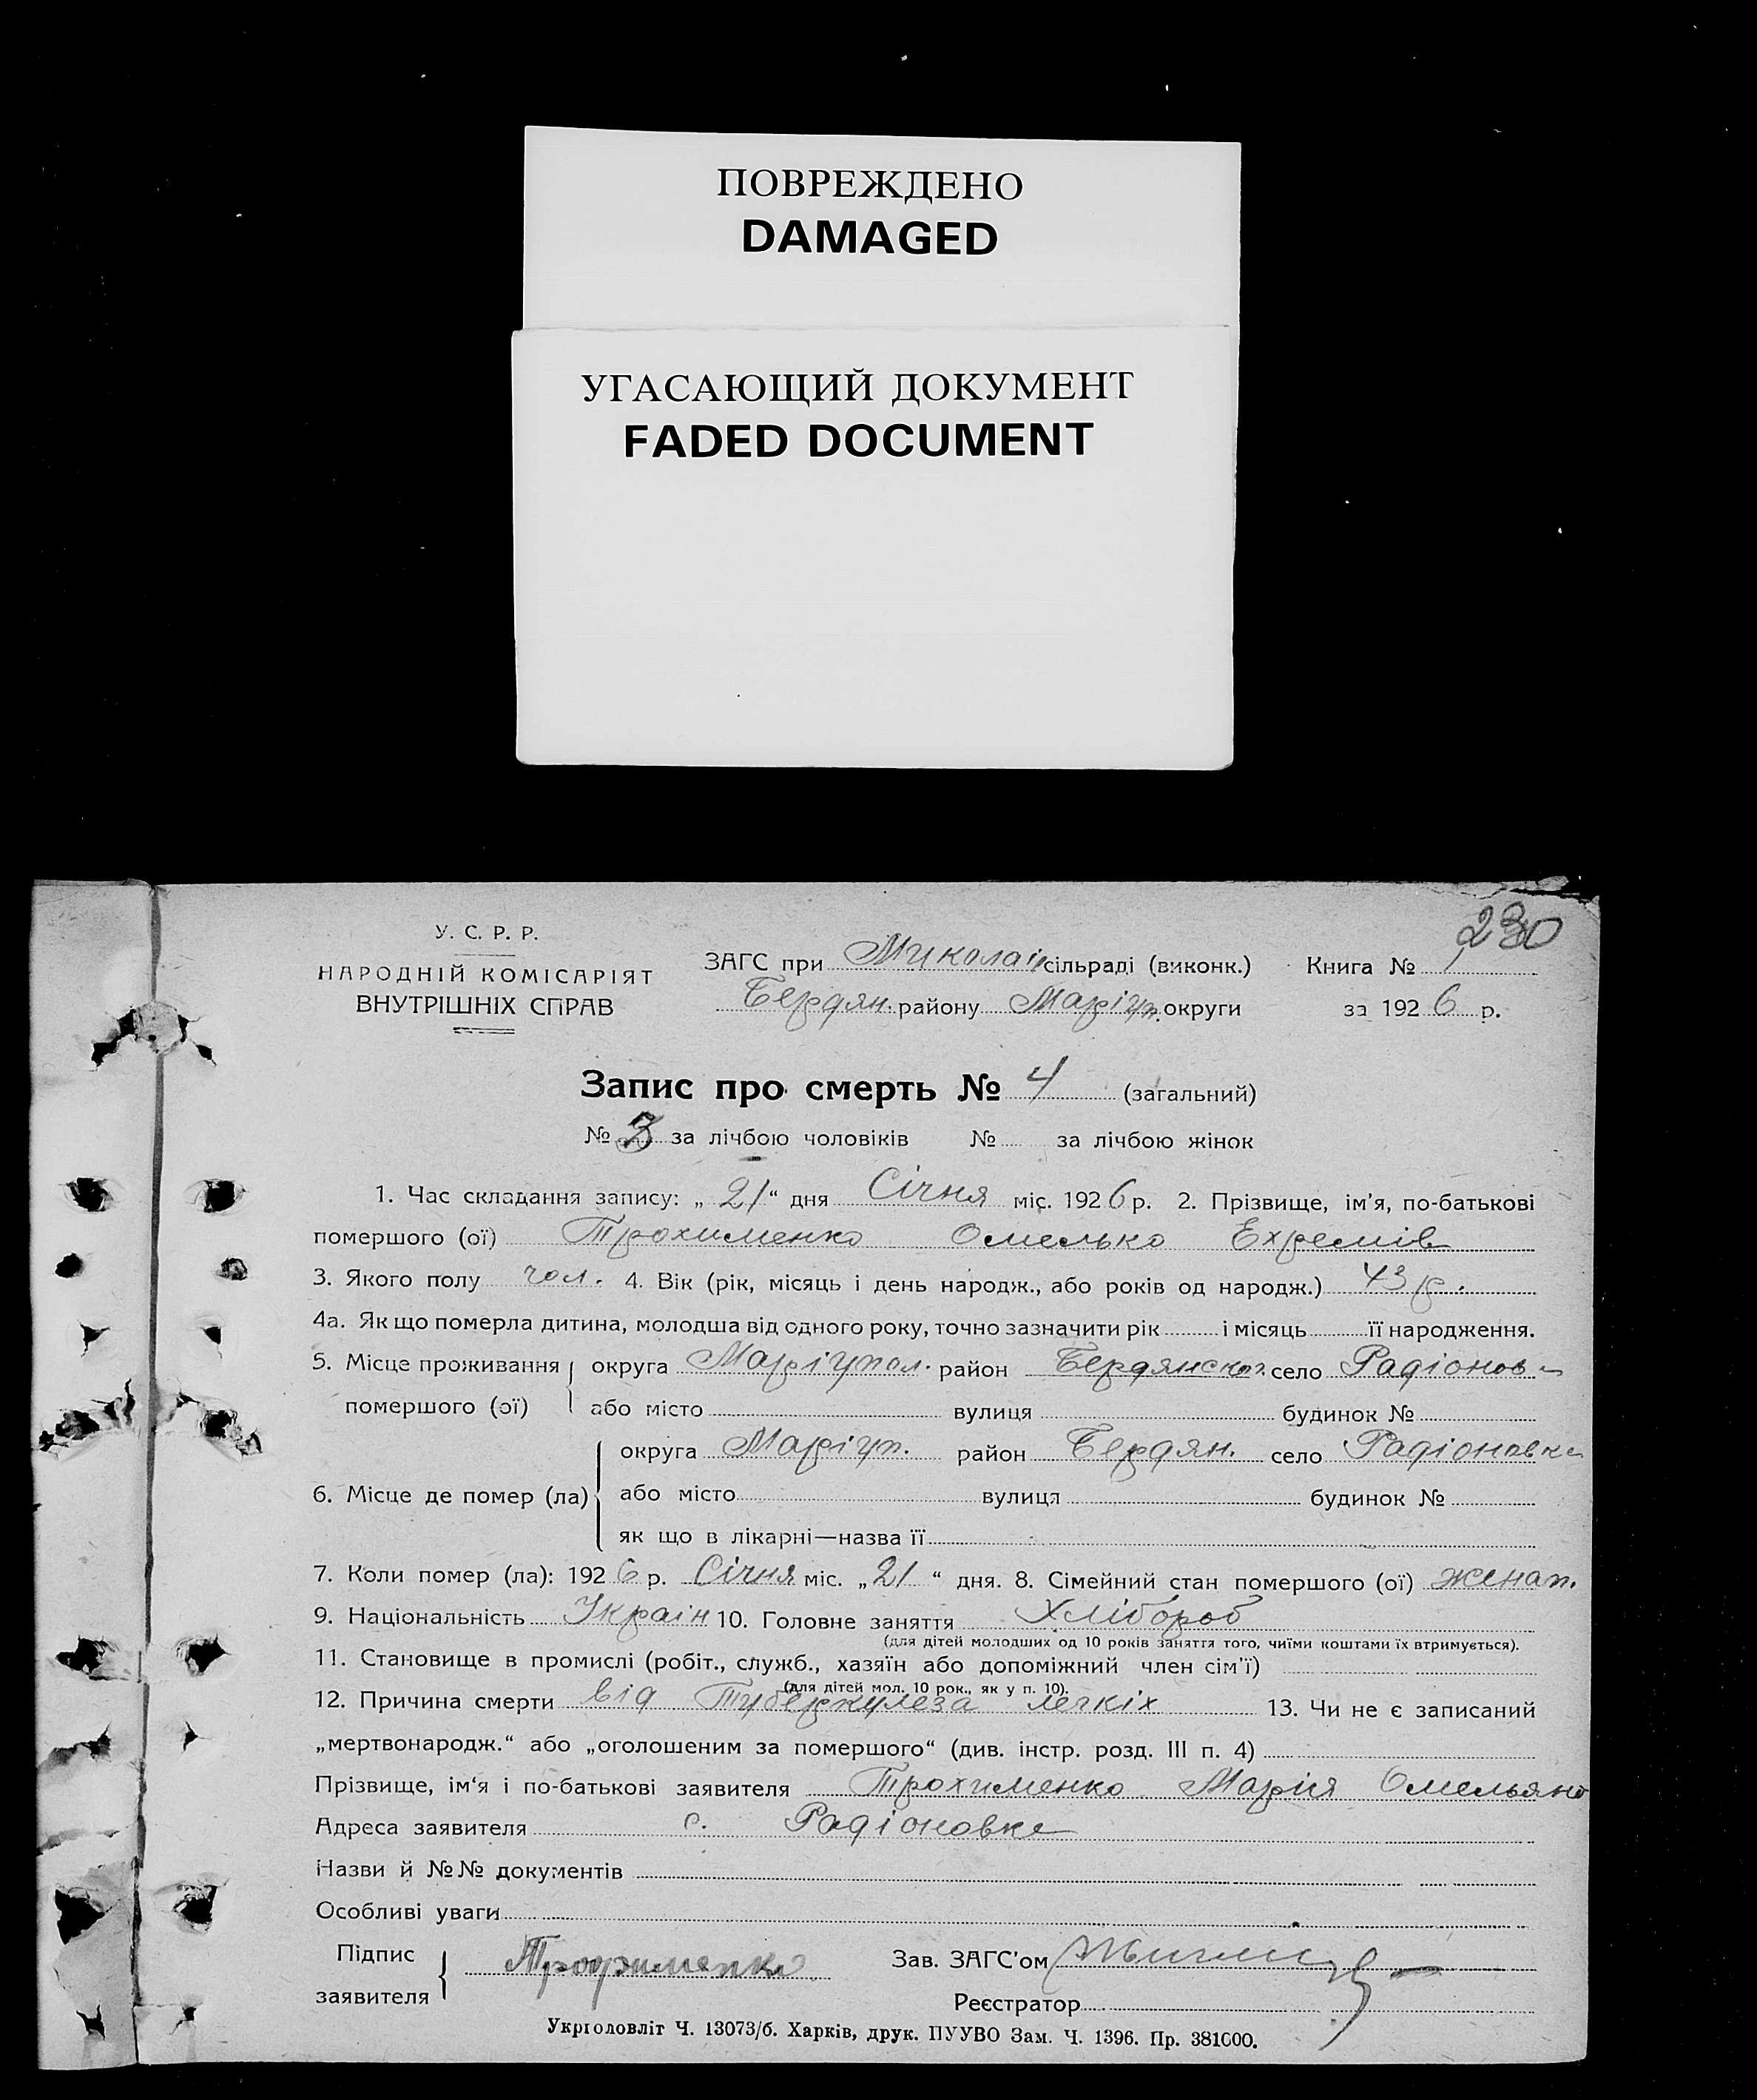 ПОВРЕЖДЕНО
DAMAGED
УГАСАЮЩИЙ ДОКУМЕНТ
FADED DOCUMENT
230
У. С. Р. Р.
НАРОДНІЙ КОМІСАРІЯТ
ВНУТРІШНІХ СПРАВ
ЗАГС при Миколаів сільраді (виконк.) Книга №
Бердян. району Маріуп. округи за 1926 р.
Запис про смерть № 4 (загальний)
№ 3 за лічбою чоловіків № за лічбою жінок
1. Час складання запису: „21“ дня Січня міс. 1926 р. 2. Прізвище, ім'я, по-батькові
помершого (ої) Трохименко Омелько Ехремів
3. Якого полу чол. 4. Вік (рік, місяць і день народж., або років од народж.) 43 р.
4а. Як що померла дитина, молодша від одного року, точно зазначити рік і місяць її народження.
5. Місце проживання округа Маріупол. район Бердянськ. село Радіонов
помершого (ої) або місто вулиця будинок №
округа Маріуп. район Бердян. село Радіоновке
6. Місце де помер (ла) або місто вулиця будинок №
як що в лікарні—назва її
7. Коли помер (ла): 1926 р. Січня міс. „21“ дня. 8. Сімейний стан помершого (ої) женат.
9. Національність Украін 10. Головне заняття Хлібороб
(для дітей молодших од 10 років заняття того, чиїми коштами їх втримується).
11. Становище в промислі (робіт., служб., хазяїн або допоміжний член сім'ї)
(для дітей мол. 10 рок., як у п. 10).
12. Причина смерти від Туберкулеза легкіх 13. Чи не є записаний
„мертвонародж.“ або „оголошеним за помершого“ (див. інстр. розд. III п. 4)
Прізвище, ім'я і по-батькові заявителя Трохименко Марія Омельяно
Адреса заявителя с. Радіоновке
Назви й №№ документів
Особливі уваги
Підпис
заявителя Трофименко Зав. ЗАГС'ом
Реєстратор
Укрголовліт Ч. 13073/б. Харків, друк. ПУУВО Зам. Ч. 1396. Пр. 381000.